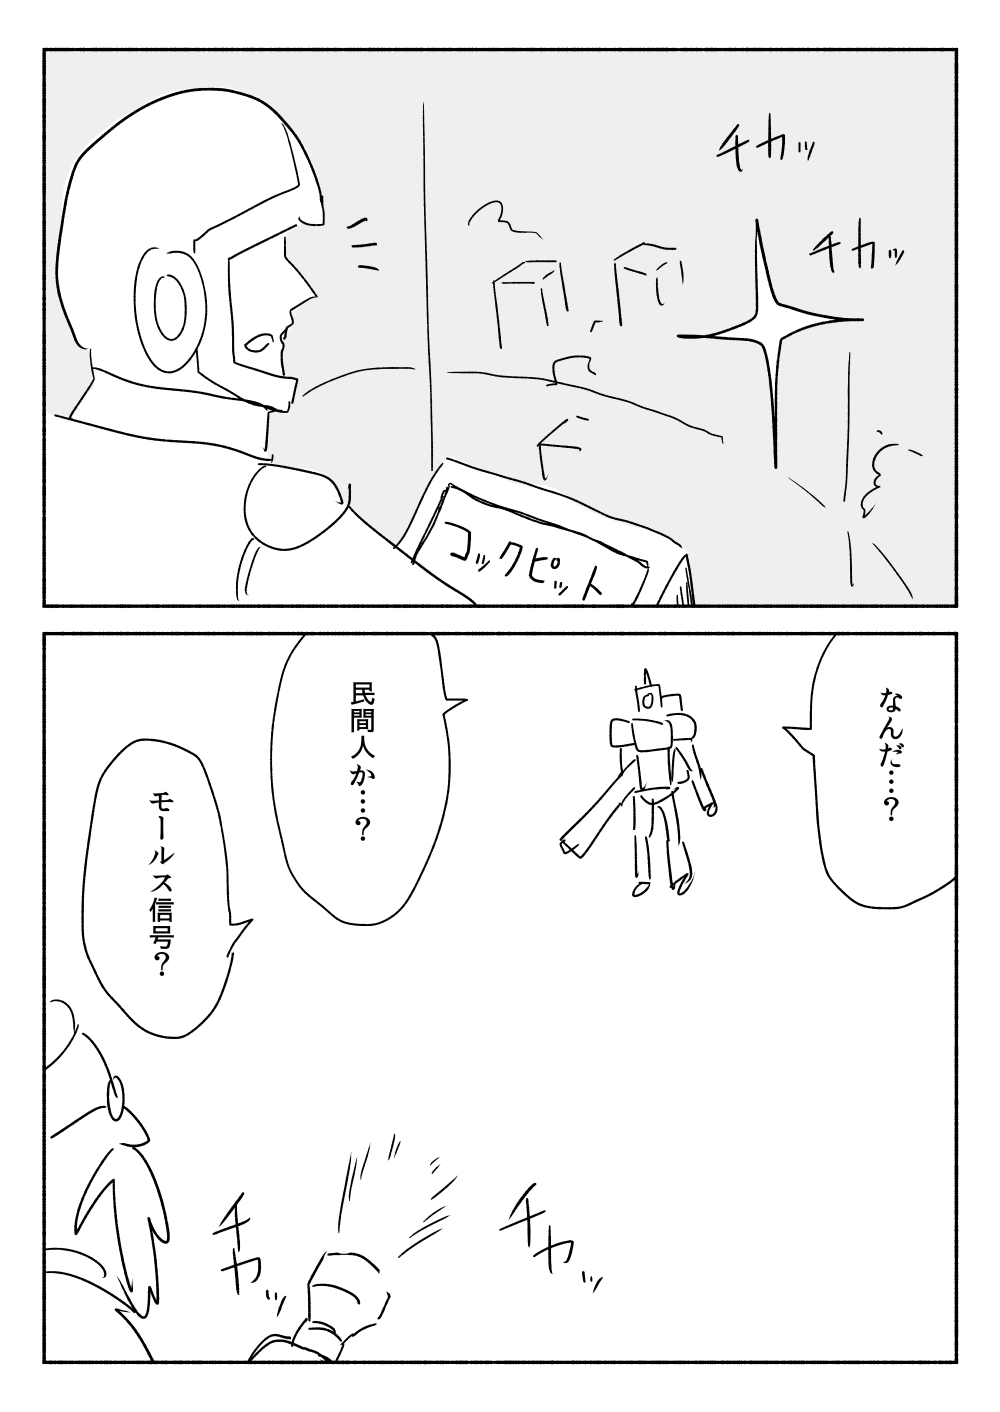 チカッ
チカッ
コックピット
なんだ…？
民間人か…？
モールス信号？
チカッ
チカッ